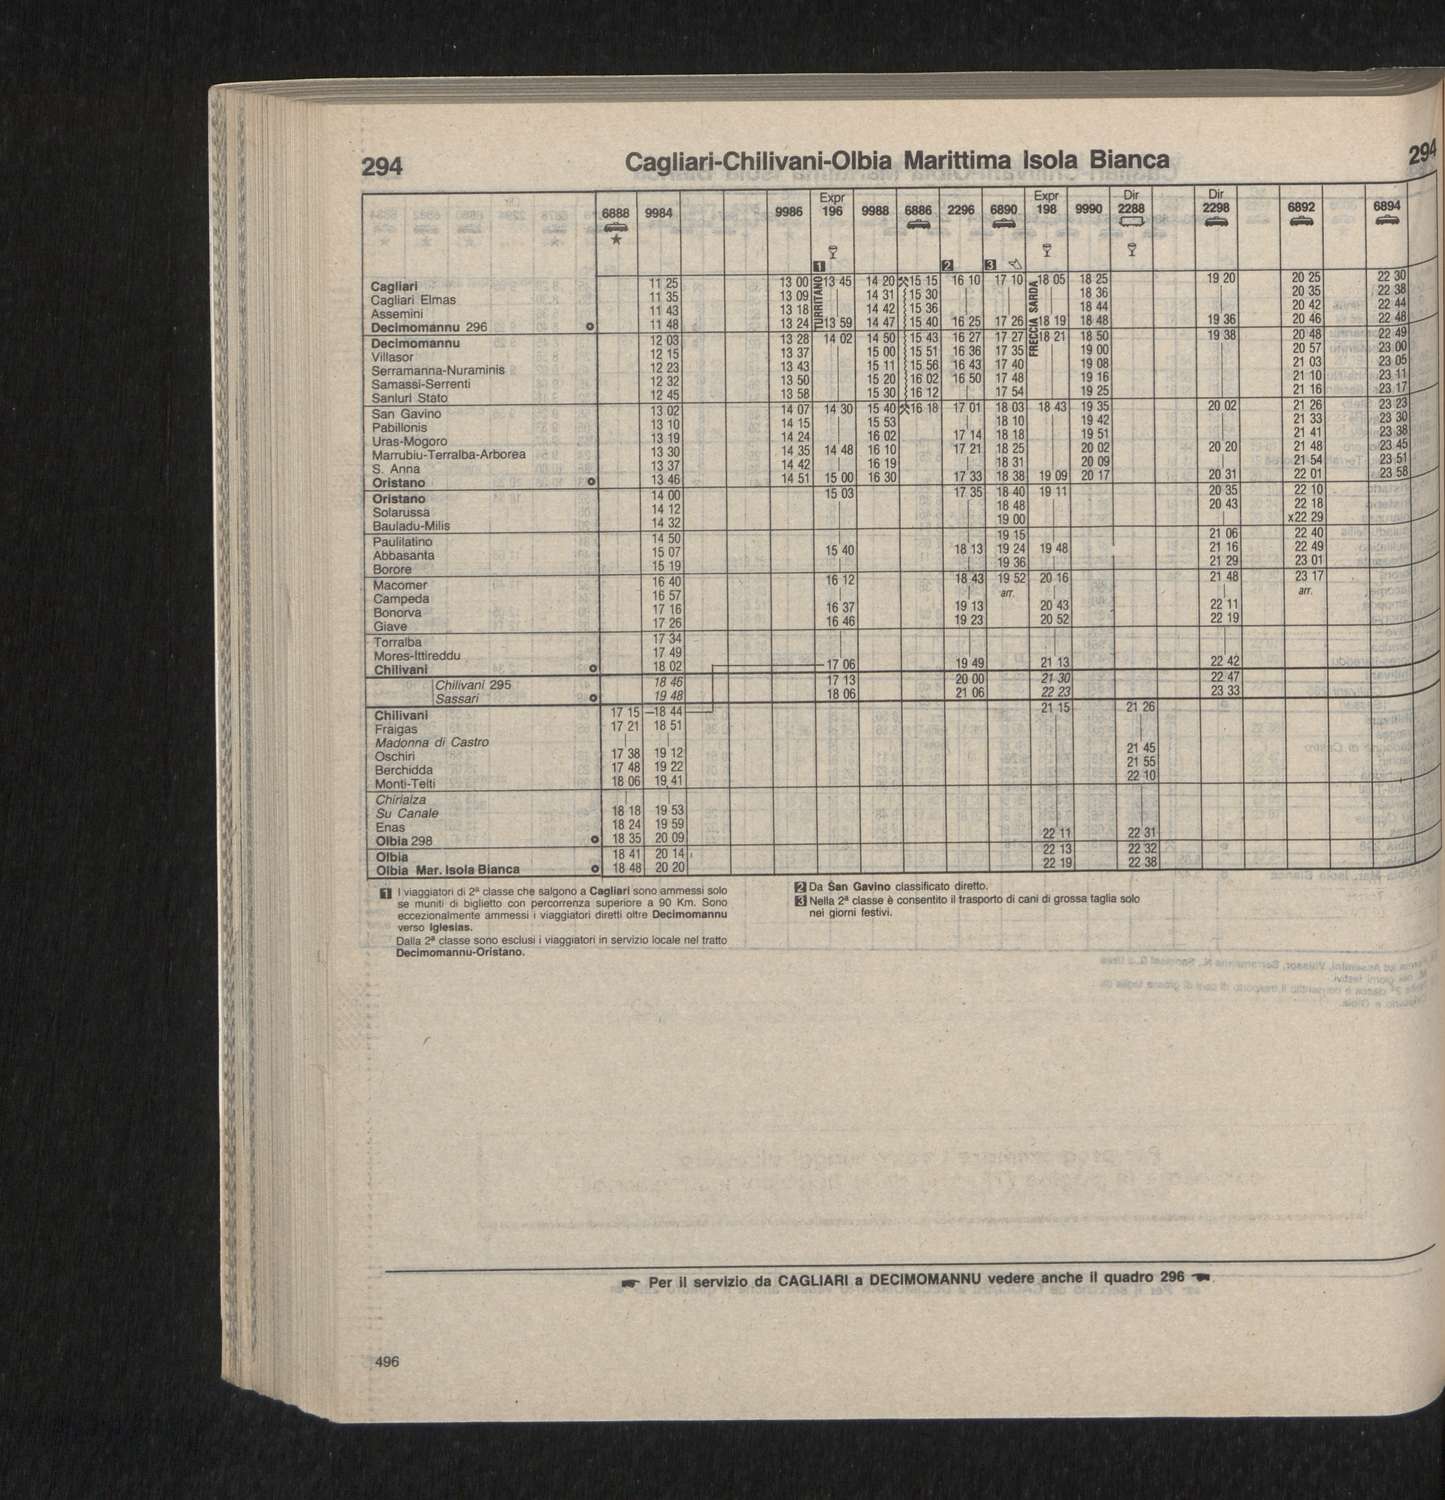 294 Cagliari-Chilivani-Olbia Marittima Isola Bianca 294
Expr Expr Dir Dir
6888 9984 9986 196 9988 6886 2296 6890 198 9990 2288 2298 6892 6894
1 2 3
TURRITANO FRECCIA SARDA
Cagliari 11 25 13 00 13 45 14 20 15 15 16 10 17 10 18 05 18 25 19 20 20 25 22 30
Cagliari Elmas 11 35 13 09 | 14 31 15 30 | | | 18 36 | 20 35 22 38
Assemini 11 43 13 18 | 14 42 15 36 | | | 18 44 | 20 42 22 44
Decimomannu 296 11 48 13 24 13 59 14 47 15 40 16 25 17 26 18 19 18 48 19 36 20 46 22 48
Decimomannu 12 03 13 28 14 02 14 50 15 43 16 27 17 27 18 21 18 50 19 38 20 48 22 49
Villasor 12 15 13 37 | 15 00 15 51 16 36 17 35 | 19 00 | 20 57 23 00
Serramanna-Nuraminis 12 23 13 43 | 15 11 15 56 16 43 17 40 | 19 08 | 21 03 23 05
Samassi-Serrenti 12 32 13 50 | 15 20 16 02 16 50 17 48 | 19 16 | 21 10 23 11
Sanluri Stato 12 45 13 58 | 15 30 16 12 | 17 54 | 19 25 | 21 16 23 17
San Gavino 13 02 14 07 14 30 15 40 16 18 17 01 18 03 18 43 19 35 20 02 21 26 23 23
Pabillonis 13 10 14 15 | 15 53 | 18 10 | 19 42 | 21 33 23 30
Uras-Mogoro 13 19 14 24 | 16 02 17 14 18 18 | 19 51 | 21 41 23 38
Marrubiu-Terralba-Arborea 13 30 14 35 14 48 16 10 17 21 18 25 | 20 02 20 20 21 48 23 45
S. Anna 13 37 14 42 | 16 19 | 18 31 | 20 09 | 21 54 23 51
Oristano 13 46 14 51 15 00 16 30 17 33 18 38 19 09 20 17 20 31 22 01 23 58
Oristano 14 00 15 03 17 35 18 40 19 11 20 35 22 10
Solarussa 14 12 | | 18 48 | 20 43 22 18
Bauladu-Milis 14 32 | | 19 00 | | x22 29
Paulilatino 14 50 | | 19 15 | 21 06 22 40
Abbasanta 15 07 15 40 18 13 19 24 19 48 21 16 22 49
Borore 15 19 | | 19 36 | 21 29 23 01
Macomer 16 40 16 12 18 43 19 52 20 16 21 48 23 17
Campeda 16 57 | | arr. | | arr.
Bonorva 17 16 16 37 19 13 20 43 22 11
Giave 17 26 16 46 19 23 20 52 22 19
Torralba 17 34 | | | |
Mores-Ittireddu 17 49 | | | |
Chilivani 18 02 17 06 19 49 21 13 22 42
Chilivani 295 18 46 17 13 20 00 21 30 22 47
Sassari 19 48 18 06 21 06 22 23 23 33
Chilivani 17 15 18 44 21 15 21 26
Fraigas 17 21 18 51 | |
Madonna di Castro | | | |
Oschiri 17 38 19 12 | 21 45
Berchidda 17 48 19 22 | 21 55
Monti-Telti 18 06 19 41 | 22 10
Chirialza | | | |
Su Canale 18 18 19 53 | |
Enas 18 24 19 59 | |
Olbia 298 18 35 20 09 22 11 22 31
Olbia 18 41 20 14 22 13 22 32
Olbia Mar. Isola Bianca 18 48 20 20 22 19 22 38
1 I viaggiatori di 2ª classe che salgono a Cagliari sono ammessi solo
se muniti di biglietto con percorrenza superiore a 90 Km. Sono
eccezionalmente ammessi i viaggiatori diretti oltre Decimomannu
verso Iglesias.
Dalla 2ª classe sono esclusi i viaggiatori in servizio locale nel tratto
Decimomannu-Oristano.
2 Da San Gavino classificato diretto.
3 Nella 2ª classe è consentito il trasporto di cani di grossa taglia solo
nei giorni festivi.
Per il servizio da CAGLIARI a DECIMOMANNU vedere anche il quadro 296
496